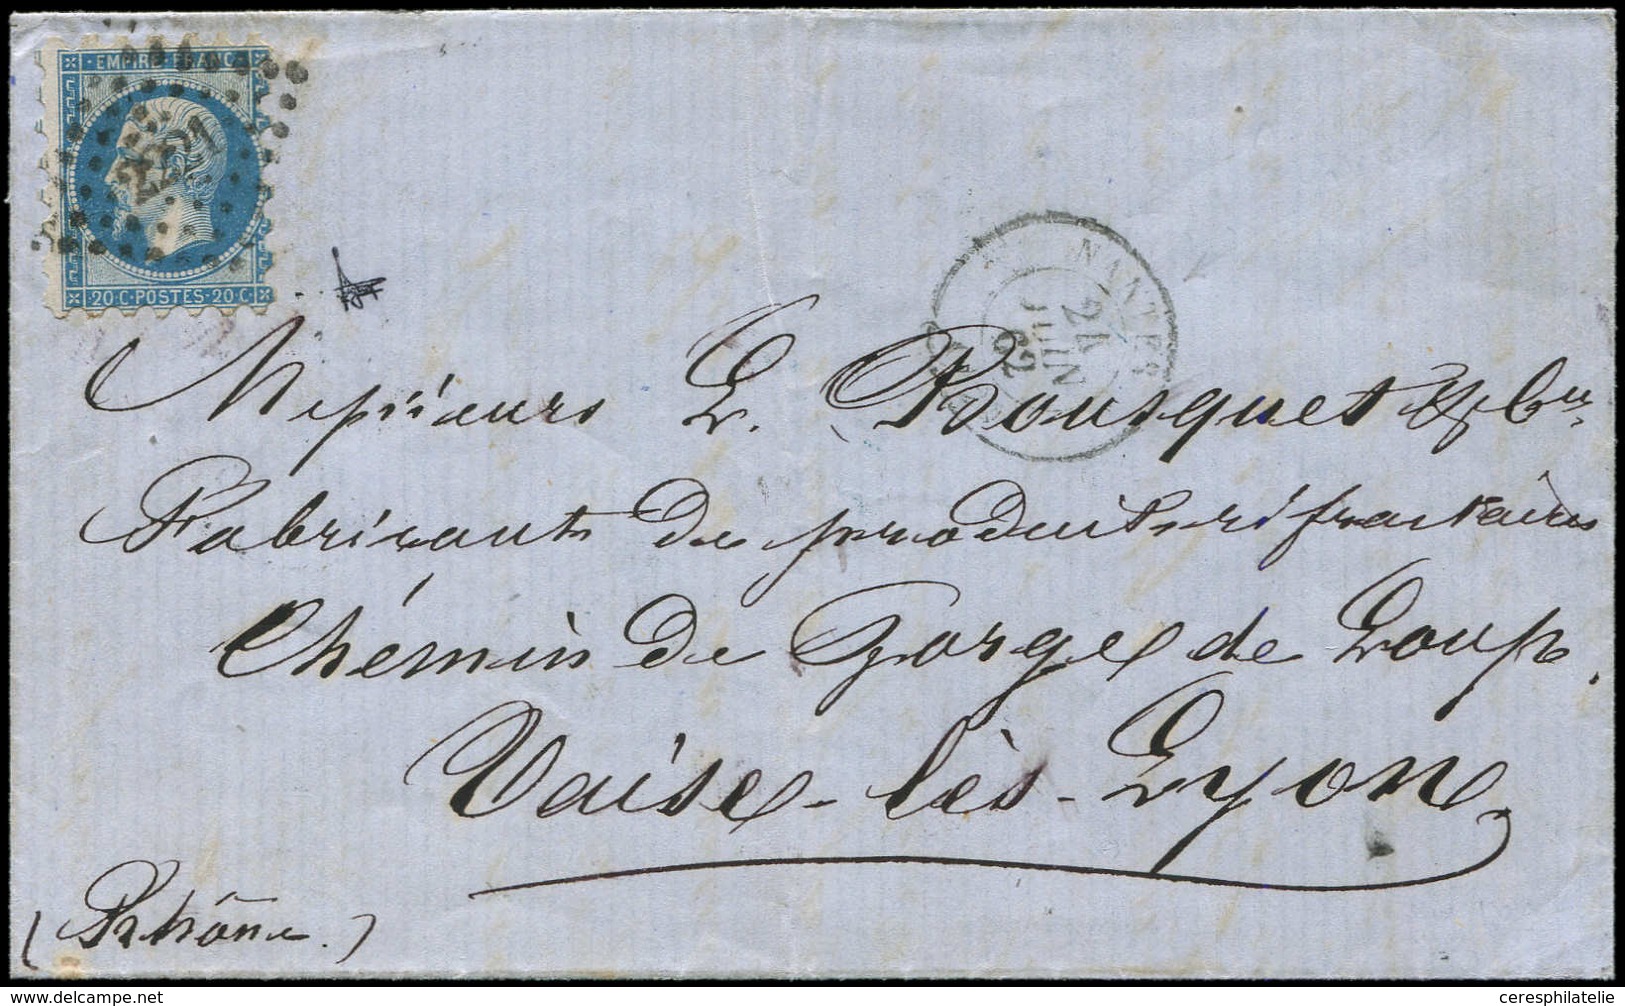 EMPIRE FRANC
2221
20 C POSTES 20 C
NANTES
24
JUIN
62
Messieurs L. Rousquet & Cie
Fabricants de produits réfractaires
Chémin de Gorge de Loup.
Vaise-lès-Lyon
(Rhône.)
www.delcampe.net
ceresphilatelie